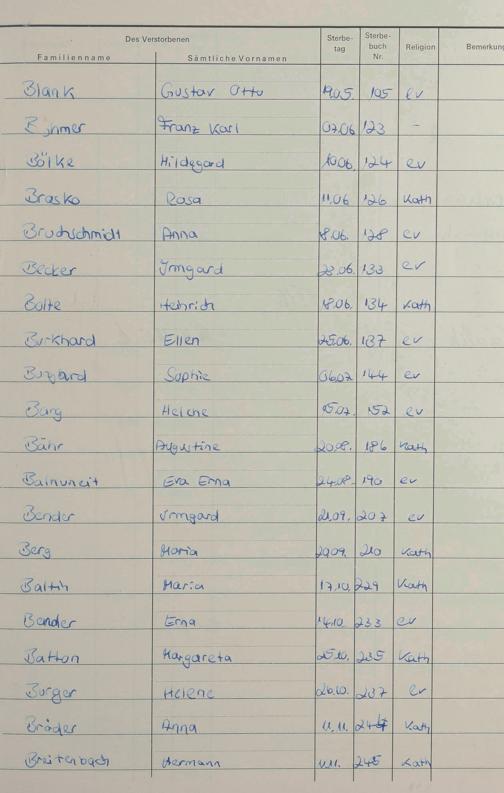 Des Verstorbenen Sterbe- Sterbe- Religion Bemerkung
Familienname Sämtliche Vornamen tag buch Nr.
Blank Gustav Otto 19.05. 105 ev
Franz Karl 07.06 123 -
Bölke Hildegard 10.06. 124 ev
Brasko Rosa 11.06 126 Kath
Bruchschmidt Anna 18.06. 128 ev
Becker Irmgard 23.06. 133 ev
Bolte Heinrich 18.06. 134 Kath
Burkhard Ellen 25.06. 137 ev
Sophie 06.07 144 ev
Helene 15.07. 152 ev
Bähr Augustine 20.08. 186 Kath
Eva Erna 24.08. 190 ev
Bender Irmgard 21.09. 207 ev
Berg Maria 29.09. 210 Kath
Maria 17.10. 229 Kath
Bender Erna 14.10. 233 ev
Batton Margareta 25.10. 235 Kath
Burger Helene 26.10. 237 ev
Bröder Anna 11.11. Kath
Breitenbach Hermann 1.11. 245 Kath